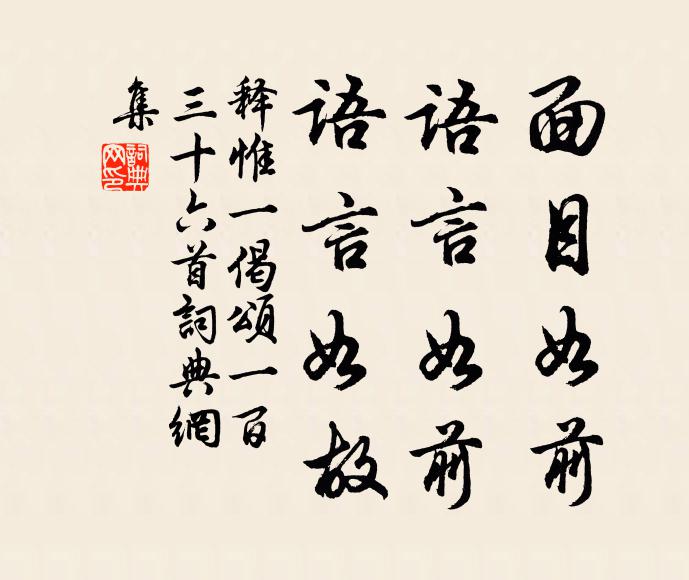 面目如前
語言如前
語言如故
释惟一偈頌一百
三十六首詞典網
集
詞典網印